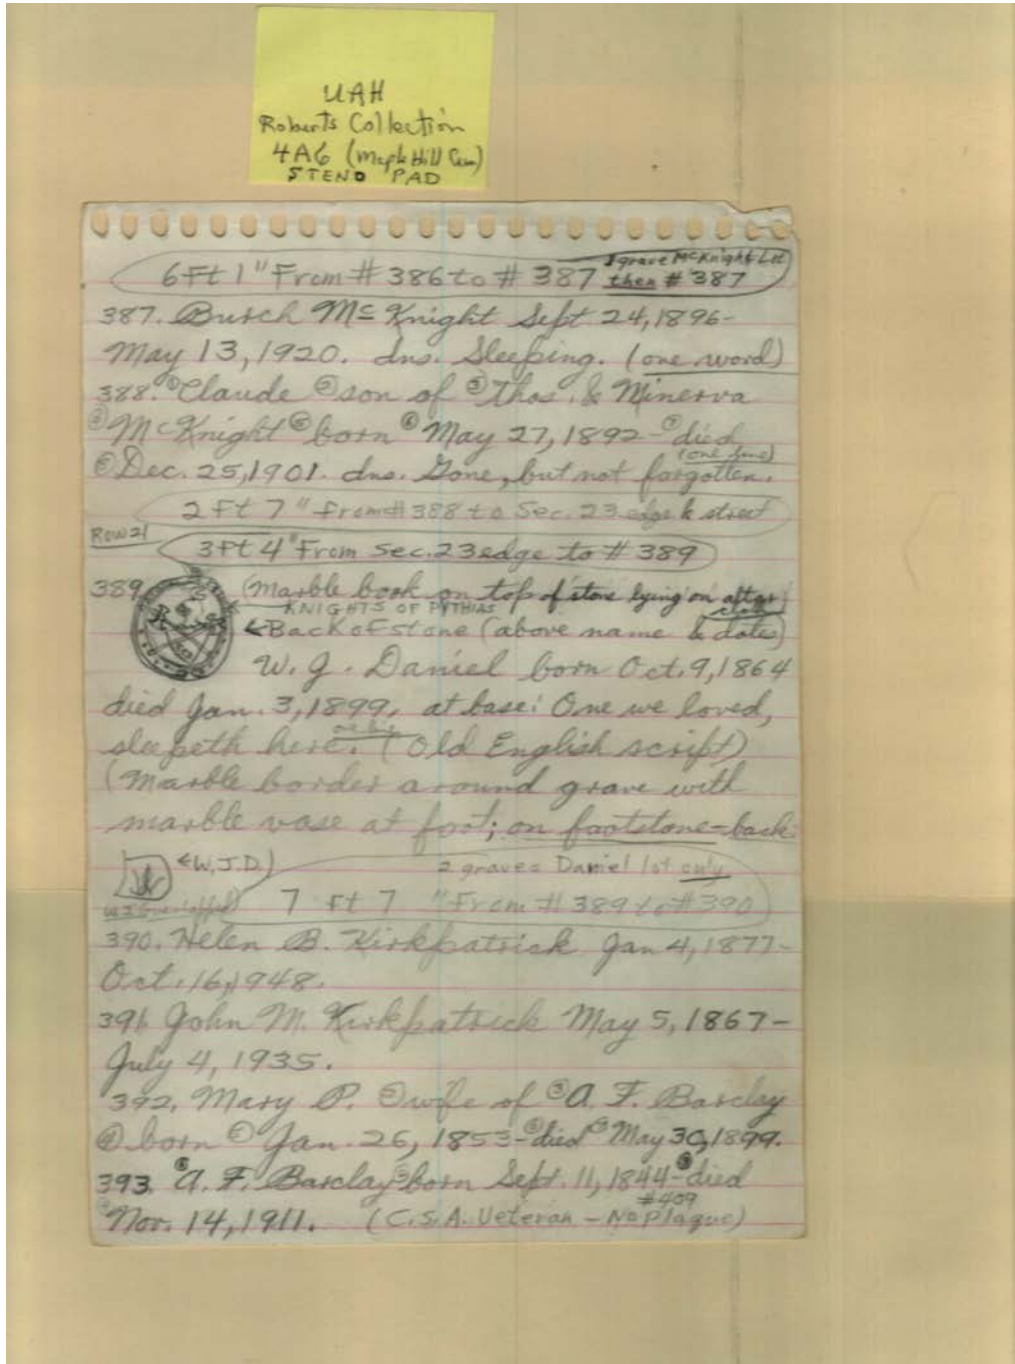 UAH
Roberts Collection
4A6 (Maple Hill Cem)
STENO PAD
1 grave McKnight Lot
6 Ft 1" From # 386 to # 387 then # 387
387. Burch Mc Knight Sept 24, 1896-
May 13, 1920. dns. Sleeping. (one word)
388. ①Claude ②son of ③Thos. & Minerva
④McKnight ⑤born ⑥May 27, 1892- ⑦died
(one line)
⑧Dec. 25, 1901. dns. Gone, but not forgotten.
2 Ft 7" from # 388 to Sec. 23 edge & street
Row 21
3 Ft 4" From Sec. 23 edge to # 389
389. (Marble book on top of stone lying on altar
KNIGHTS OF PYTHIAS
←Back of stone (above name & dates)
W. J. Daniel born Oct. 9, 1864
died Jan. 3, 1899. at base: One we loved,
sleepeth here. (Old English script)
(Marble border around grave with
marble vase at foot; on footstone-back:
←W.J.D.) 2 graves Daniel lot only
7 Ft 7" From # 389 to # 390
390. Helen B. Kirkpatrick Jan 4, 1877-
Oct. 16, 1948.
391. John M. Kirkpatrick May 5, 1867-
July 4, 1935.
392. Mary P. ②wife of ③A. F. Barclay
④born ⑤Jan. 26, 1853- ⑥died ⑦May 30, 1899.
393. A. F. Barclay born Sept. 11, 1844- died
#409
Nov. 14, 1911. (C.S.A. Veteran - No Plaque)